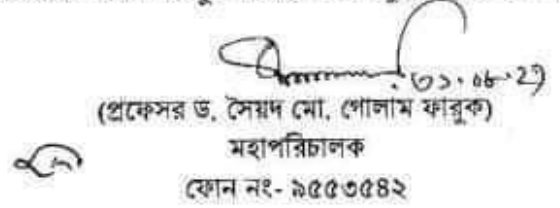 ৩১.০৮.২১
(প্রফেসর ড. সৈয়দ মো. গোলাম ফারুক)
মহাপরিচালক
ফোন নং- ৯৫৫৩৫৪২